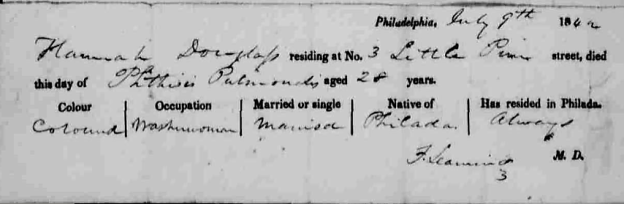 Philadelphia, July 9th 1842
Hannah Douglass residing at No. 3 Little Pine street, died
this day of Phthisis Pulmonalis aged 28 years.
Colour Occupation Married or single Native of Has resided in Philada.
Coloured Washwoman Married Philada. Always
F. Leaming M. D.
3